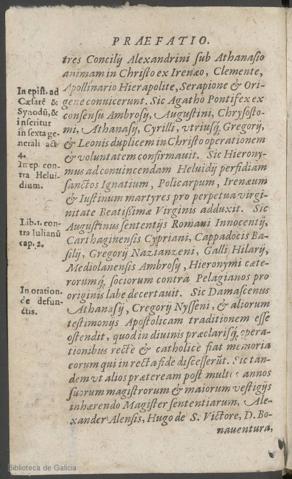 PRAEFATIO.
tres Concilij Alexandrini sub Athanasio
animam in Christo ex Irenæo, Clemente,
Apollinario Hierapolite, Serapione & Ori-
gene convicerunt. Sic Agatho Pontifex ex
consensu Ambrosij, Augustini, Chrysosto-
mi, Athanasij, Cyrilli, vtriusq́; Gregorij,
& Leonis duplicem in Christo operationem
& voluntatem confirmauit. Sic Hierony-
mus ad conuincendam Heluidij perfidiam
sanctos Ignatium, Policarpum, Irenæum
& Iustinum martyres pro perpetua virgi-
nitate Beatissimæ Virginis adduxit. Sic
Augustinus sententijs Romani Innocentij,
Carthaginensis Cypriani, Cappadocis Ba-
silij, Gregorij Nazianzeni, Galli Hilarij,
Mediolanensis Ambrosij, Hieronymi cæte-
rorumq́; sociorum contra Pelagianos pro
originis labe decertauit. Sic Damascenus
Athanasij, Gregorij Nysseni, & aliorum
testimonijs Apostolicam traditionem esse
ostendit, quod in diuinis præclarisq́; opera-
tionibus rectè & catholicè fiat memoria
eorum qui in recta fide discesserũt. Sic tan-
dem vt alios præteream post multos annos
suorum magistrorum & maiorum vestigijs
inhærendo Magister sententiarum, Ale-
xander Alensis, Hugo de S. Victore, D. Bo-
nauentura,
In epist. ad
Cæsarẽ &
Synodũ, &
inseritur
in sexta ge-
nerali act
4.
In ep. con-
tra Helui-
dium.
Lib. 1. con-
tra Iulianũ
cap. 2.
In oration.
de defun-
ctis.
Biblioteca de Galicia